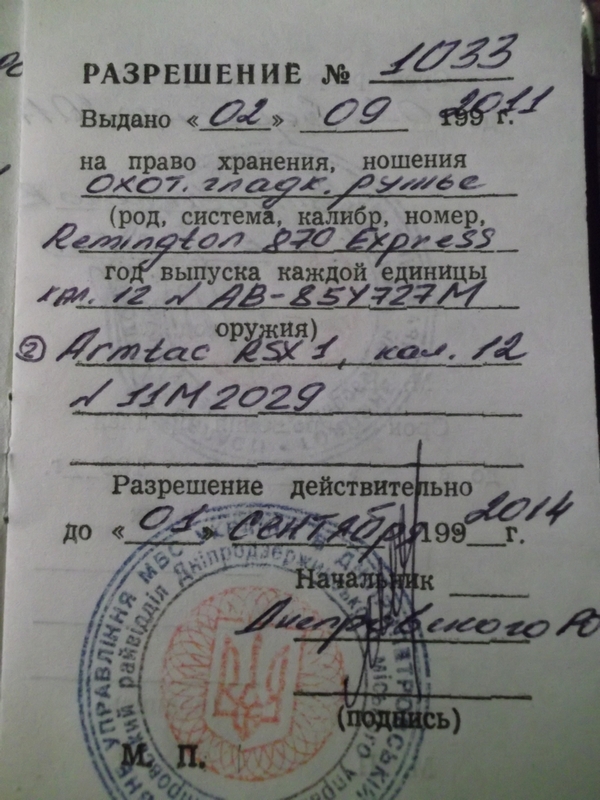 РАЗРЕШЕНИЕ № 1033
Выдано «02» 09 2011 199 г.
на право хранения, ношения
охот. гладк. ружье
(род, система, калибр, номер,
Remington 870 Express
год выпуска каждой единицы
кал. 12 N АВ-854727М
оружия)
② Armtac RSX1, кал. 12
N 11М2029
Разрешение действительно
до «01» сентября 199 2014 г.
Начальник
Днепровского РО
(подпись)
М. П.
УПРАВЛІННЯ МВС
Дніпродзержинського
міського